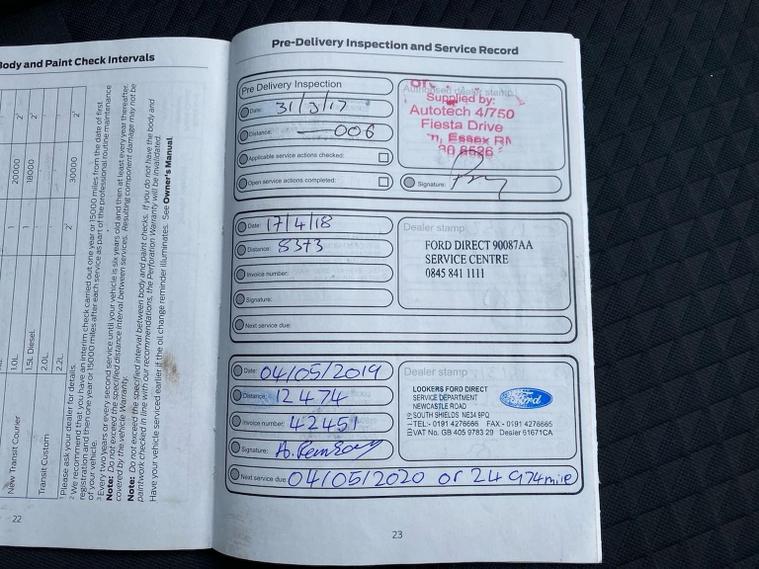 Body and Paint Check Intervals
20000 2¹
1 18000 2¹
2¹ 30000 2¹
New Transit Courier 1.0L
1.5L Diesel
Transit Custom 2.0L
2.2L
¹ Please ask your dealer for details.
² We recommend that you have an interim check carried out one year or 15000 miles from the date of first
registration and then one year or 15000 miles after each service as part of the professional routine maintenance
of your vehicle.
³ Every two years or every second service until your vehicle is six years old and then at least every year thereafter.
Note: Do not exceed the specified distance interval between services. Resulting component damage may not be
covered by the vehicle Warranty.
Note: Do not exceed the specified interval between body and paint checks. If you do not have the body and
paintwork checked in line with our recommendations, the Perforation Warranty will be invalidated.
Have your vehicle serviced earlier if the oil change reminder illuminates. See Owner's Manual.
22
Pre-Delivery Inspection and Service Record
Pre Delivery Inspection
Date: 31/3/17
Distance: 006
Applicable service actions checked:
Open service actions completed:
Authorised dealer stamp
Supplied by:
Autotech 4/750
Fiesta Drive
Essex
Signature:
Date: 17/4/18
Distance: 8373
Invoice number:
Signature:
Next service due:
Dealer stamp
FORD DIRECT 90087AA
SERVICE CENTRE
0845 841 1111
Date: 04/05/2019
Distance: 12474
Invoice number: 42451
Signature:
Next service due: 04/05/2020 or 24 974 mile
Dealer stamp
LOOKERS FORD DIRECT
SERVICE DEPARTMENT
NEWCASTLE ROAD
SOUTH SHIELDS NE34 9PQ
TEL:- 0191 4276666 FAX:- 0191 4276665
VAT No. GB 405 9783 29 Dealer 61671CA
Ford
23